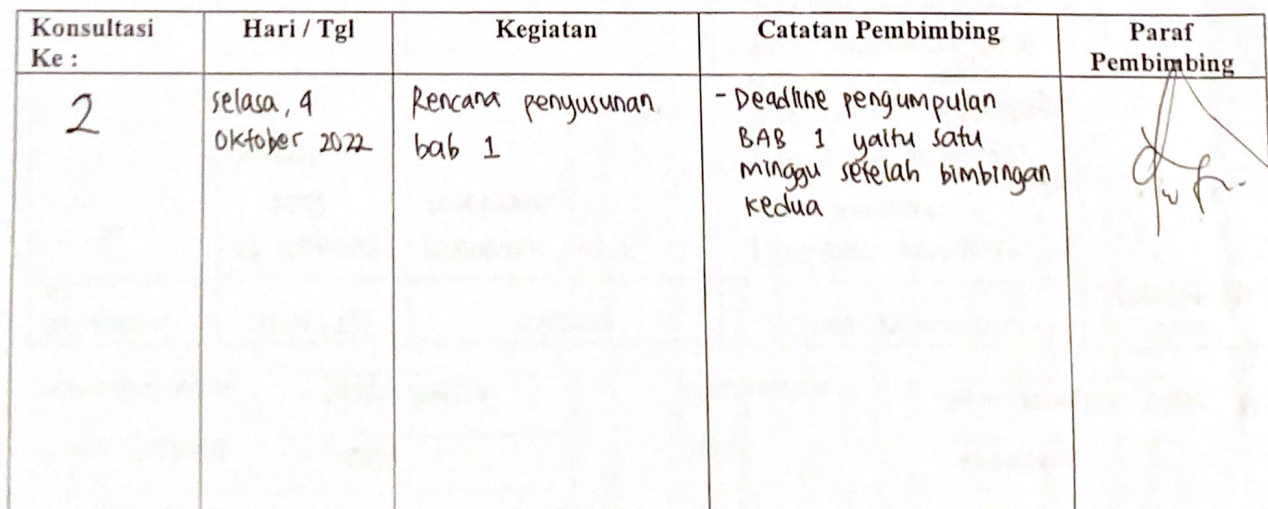 Konsultasi Ke :
Hari / Tgl
Kegiatan
Catatan Pembimbing
Paraf Pembimbing
2
Selasa, 4
Oktober 2022
Rencana penyusunan
bab 1
- Deadline pengumpulan
BAB 1 yaitu satu
minggu setelah bimbingan
kedua